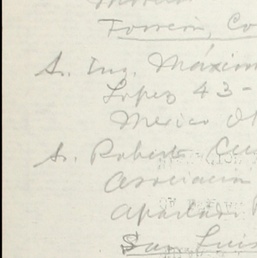 Torreón, Co
Sr. Ing. Máxim
Lopez 43-
Mexico
Sr. Roberto
Asociación
Apartado
San Luis